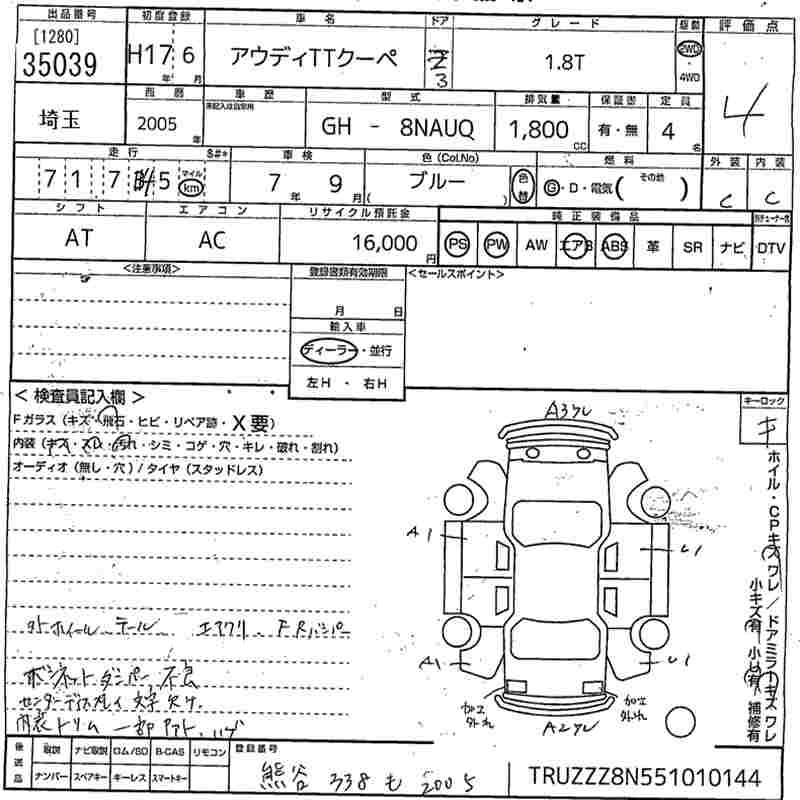 出品番号 初度登録 車名 ドア グレード 駆動 評価点
[1280]
35039 H17年 6月 アウディTTクーペ 3 1.8T 2WD 4WD 4
西暦 車歴 型式 排気量 保証書 定員
埼玉 2005年 未記入は自家用 GH - 8NAUQ 1,800cc 有・無 4名
走行 S#* 車検 色(Col.No) 燃料 外装 内装
7 1 7 5 マイル km 7年 9月 ブルー ( ) 色替 G・D・電気 (その他) C C
シフト エアコン リサイクル預託金 純正装備品
AT AC 16,000円 PS PW AW エアB ABS 革 SR ナビ DTV
<注意事項> 登録書類有効期限 <セールスポイント>
月 日
輸入車
ディーラー・並行
左H ・ 右H
<検査員記入欄> キーロック
Fガラス (キズ・飛石・ヒビ・リペア跡・X要) キ
内装 (キズ・スレ・汚れ・シミ・コゲ・穴・キレ・破れ・割れ)
オーディオ (無し・穴) / タイヤ (スタッドレス)
ホイル・CPキズワレ/ドアミラーキズワレ
小キズ有 小凹有 補修有
A3ワレ
A1 U1
A1 U1
加工外れ 加工外れ
A2ワレ
外ホイール テール エアクリ F.Rバンパー
ボンネットダンパー不良
センターディスプレイ 文字欠け
内装トリム一部
後送品 取説 ナビ取説 ロム/SD B-CAS リモコン 登録番号
ナンバー スペアキー キーレス スマートキー 熊谷 338 も 2005 TRUZZZ8N551010144